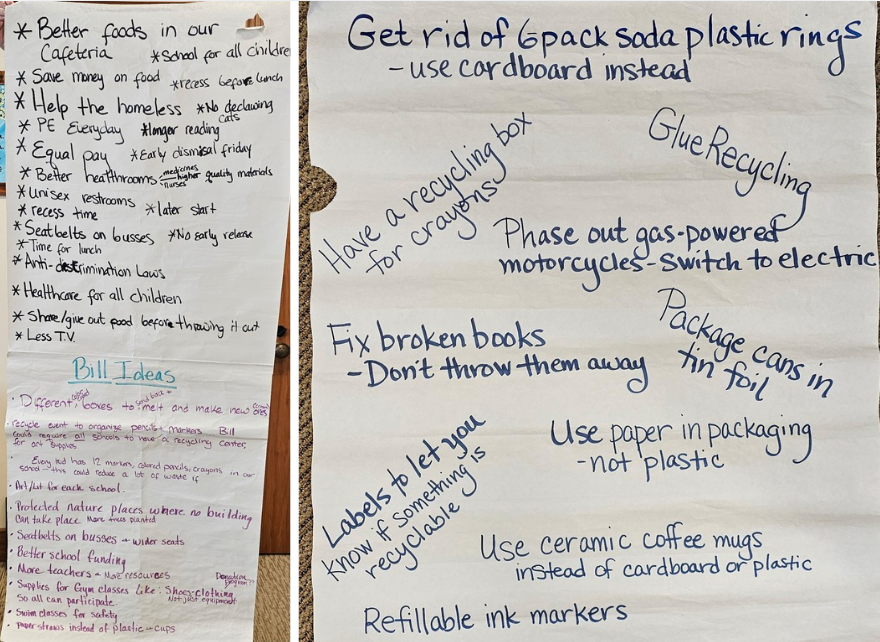 * Better foods in our
Cafeteria
* School for all children
* Save money on food
* recess before lunch
* Help the homeless
* No declawing
cats
* PE Everyday
* longer reading
* Equal pay
* Early dismisal friday
* Better healthrooms
medicines
nurses
higher quality materials
* Unisex restrooms
* recess time
* later start
* Seatbelts on busses
* No early release
* Time for lunch
* Anti-discrimination Laws
* Healthcare for all children
* Share/give out food before throwing it out
* Less T.V.
Bill Ideas
• Different boxes to melt and make new
send back +
• recycle event to organize pencils + markers Bill
could require all schools to have a recycling center
for art supplies
• Every kid has 12 markers, colored pencils, crayons in our
school - this could reduce a lot of waste if
• Art/ for each school.
• Protected nature places where no building
Can take place More trees planted
• Seatbelts on busses + wider seats
• Better school funding
• More teachers + More resources
• Supplies for Gym classes Like: Shoes-clothing
Donation
So all can participate
Not just equipment
• Swim classes for safety
• Paper straws instead of plastic + cups
Get rid of 6pack soda plastic rings
- use cardboard instead
Have a recycling box
for crayons
Glue Recycling
Phase out gas-powered
motorcycles - Switch to electric
Fix broken books
- Don't throw them away
Package cans in
tin foil
Labels to let you
know if something is
recyclable
Use paper in packaging
- not plastic
Use ceramic coffee mugs
instead of cardboard or plastic
Refillable ink markers